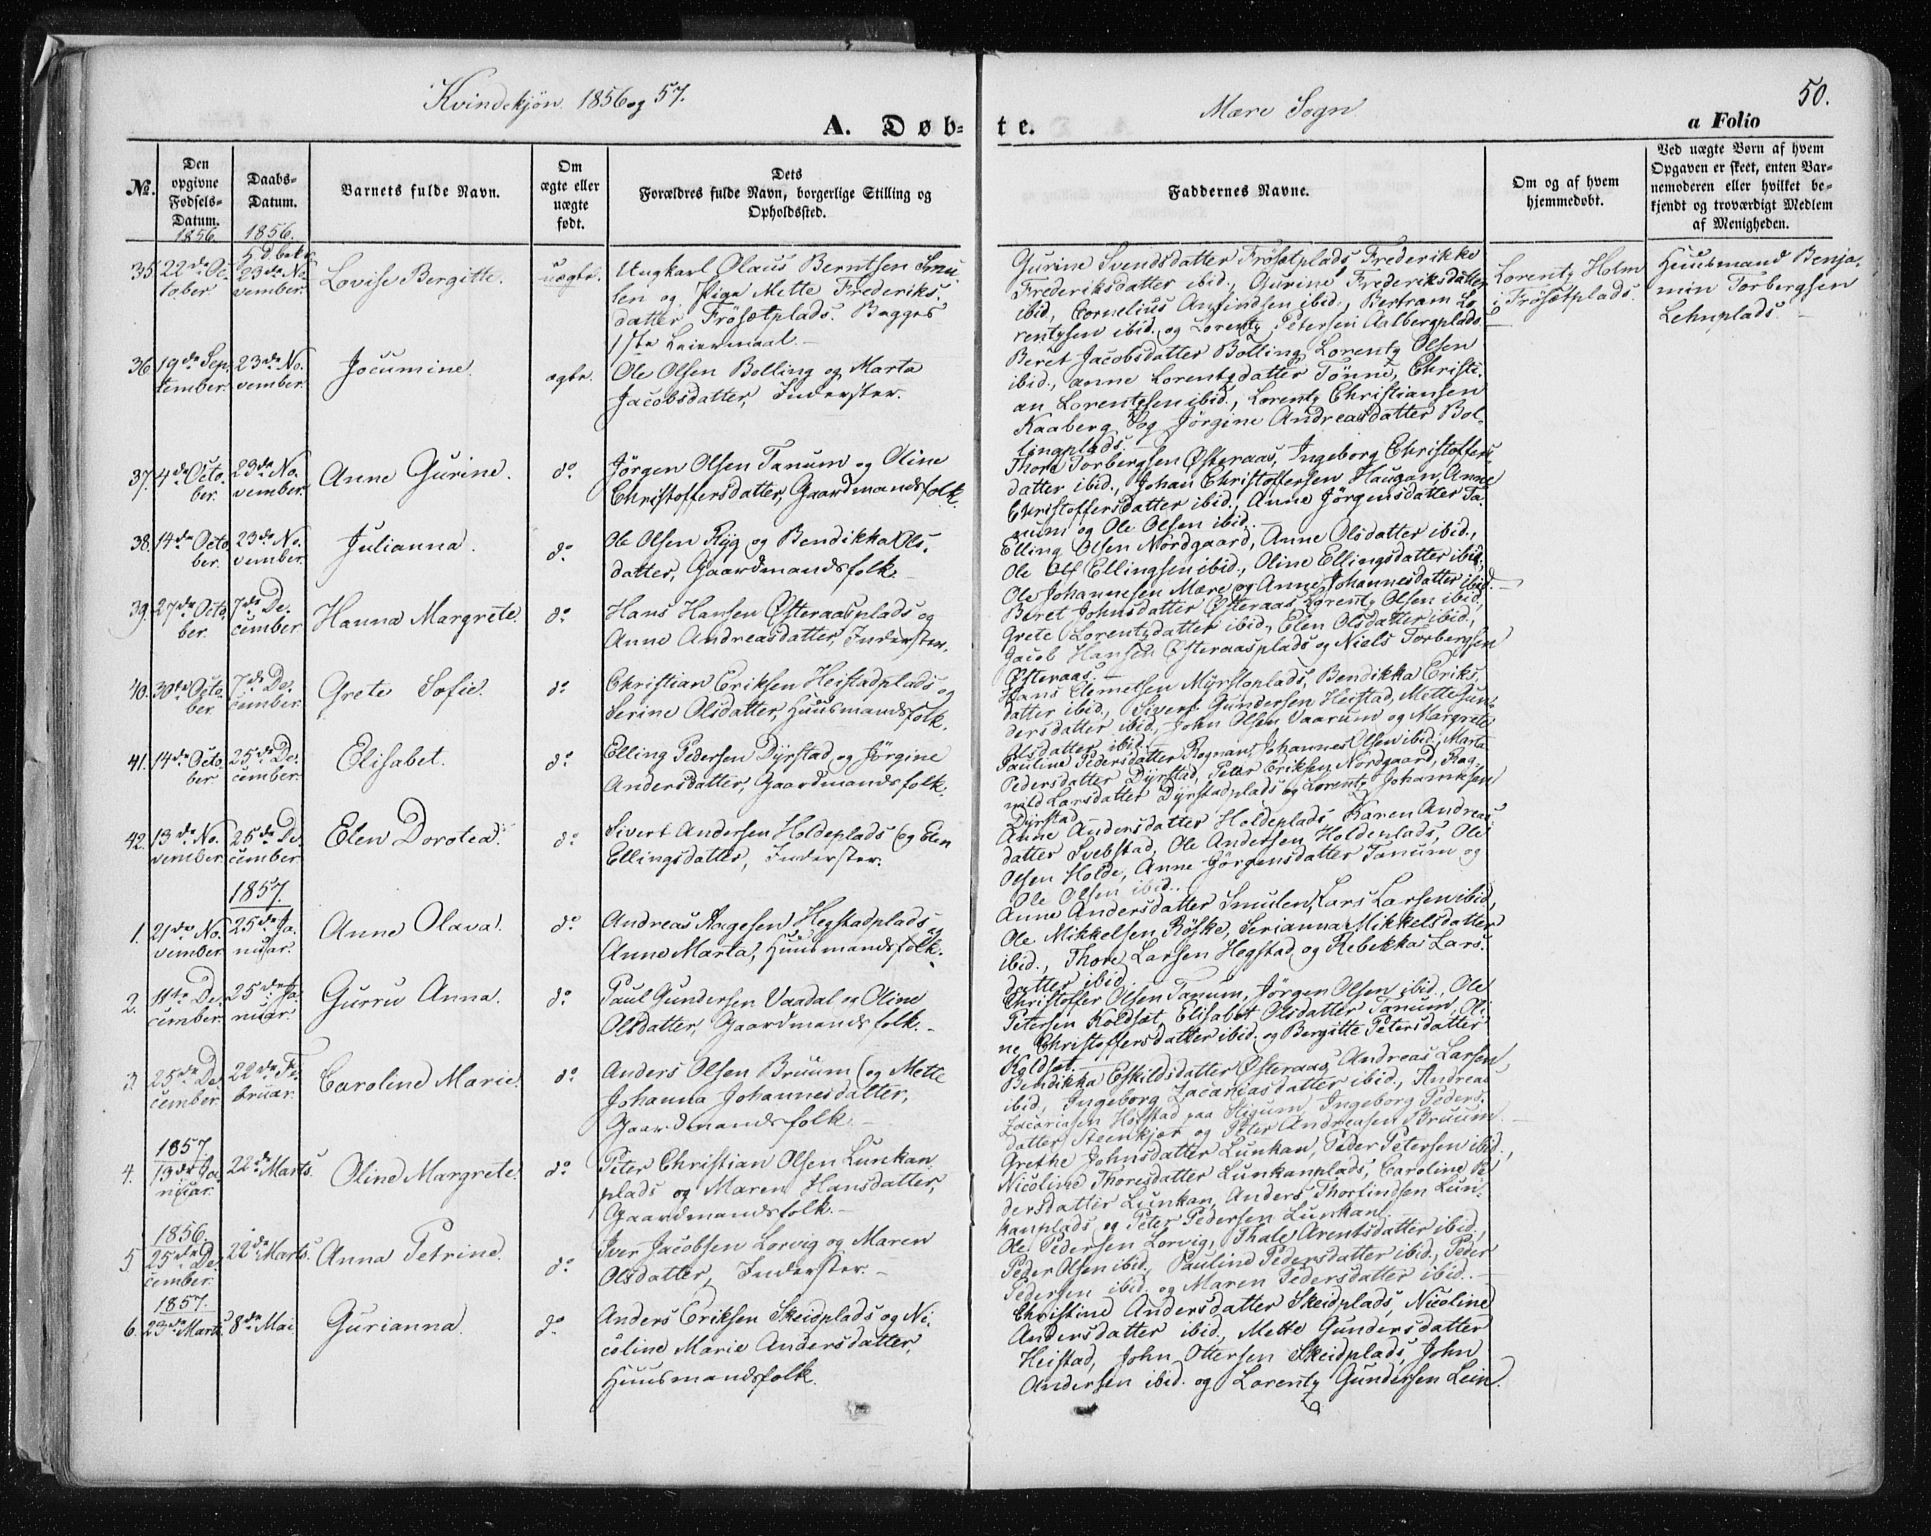 Kvindekjøn 1856 og 57.
Mære Sogn
50.
A. Døb-
te.
a Folio
No.
Den opgivne Fødsels-Datum.
Daabs-Datum.
Barnets fulde Navn.
Om ægte eller uægte født.
Dets Forældres fulde Navn, borgerlige Stilling og Opholdssted.
Faddernes Navne.
Om og af hvem hjemmedøbt.
Ved uægte Børn af hvem Opgaven er skeet, enten Barnemoderen eller hvilket bekjendt og troværdigt Medlem af Menigheden.
1856.
1856.
35
22de Oc
tober
23de No
vember
Lovise Bergitte.
uægte.
Ungkarl Olaus Berntsen Smu
len og Pige Mette Frederiks
datter Frösetplads. Begges
1ste Leiermaal.
Gurine Svendsdatter Frösetplads Frederikke
Frederiksdatter ibid., Gurine Frederiksdatter
ibid, Cornelius Anfindsen ibid., Bertram Lo
rentzsen ibid. og Lorentz Petersen Aalbergplads
Lorentz Holm
i Frösetplads.
Huusmand Benja
min Torbergsen
Lehnplads.
36
19de Sep
tember.
23de No
vember.
Jocumine.
ægte.
Ole Olsen Bolling og Marta
Jacobsdatter, Inderster.
Beret Jacobsdatter Bolling, Lorentz Olsen
ibid., Anne Lorentzdatter Tönne, Christi
an Lorentzsen ibid., Lorentz Christiansen
Kaaberg og Jörgine Andreasdatter Bol
lingplads.
37.
4de Octo
ber.
23de No
vember.
Anne Gurine.
do.
Jörgen Olsen Tanum og Oline
Christoffersdatter, Gaardmandsfolk.
Thore Torbergsen Østeraas, Ingeborg Christoffers
datter ibid., Johan Christoffersen Haugan, Anne
Christoffersdatter ibid., Anne Jörgensdatter Ta
num og Ole Olsen ibid.
38.
14de Octo
ber.
23de No
vember.
Julianna.
do.
Ole Olsen Ryg og Bendikka Ols
datter, Gaardmandsfolk.
Elling Olsen Nordgaard, Anne Olsdatter ibid.,
Ole Ellingsen ibid., Oline Ellingsdatter ibid,
Ole Johannesen Mære og Anne Johannesdatter ibid.
39.
27de Octo
ber.
7de De
cember
Hanna Margrete.
do.
Hans Hansen Østeraasplads og
Anne Andreasdatter, Inderster.
Beret Johnsdatter Østeraas, Lorentz Olsen ibid,
Grete Lorentzdatter ibid., Elen Olsdatter ibid.,
Jacob Hansen Østeraasplads og Niels Torbergsen
Østeraas.
40.
30de Octo
ber.
7de De
cember.
Grete Sofie.
do.
Christian Eriksen Heistadplads og
Serine Olsdatter, Huusmandsfolk.
Hans Clemetsen Myrstoplads, Bendikka Eriks
datter ibid., Sivert Gundersen Heistad, Mette Gun
dersdatter ibid., John Olsen Vaarum og Margrete
Olsdatter ibid.
41.
14de Octo
ber
25de De
cember.
Elisabet.
do.
Elling Pedersen Dyrstad og Jörgine
Andersdatter, Gaardmandsfolk.
Pauline Pedersdatter Rognan, Johannes Olsen ibid, Marta
Pedersdatter Dyrstad, Peter Eriksen Nordgaard, Rag
nild Larsdatter Dyrstadplads og Lorentz Johannesen
Dyrstad
42.
13de No
vember.
25de De
cember
Elen Dorotea.
do.
Sivert Andersen Holdeplads og Elen
Ellingsdatter, Inderster.
Anne Andersdatter Holdeplads, Karen Andreas
datter Svebstad, Ole Andersen Holdenplads, Ole
Olsen Holde, Anne Jörgensdatter Tanum og
Ole Olsen ibid.
1857.
1.
21de No
vember
25de Ja
nuar.
Anne Olava.
do.
Andreas Aagesen Hegstadplads og
Anne Marta, Huusmandsfolk.
Anne Andersdatter Smulen, Lars Larsen ibid,
Ole Mikkelsen Röske, Serianna Mikkelsdatter
ibid., Thore Larsen Hegstad og Rebekka Lars
datter ibid
2.
11te De
cember.
25de Ja
nuar.
Gurru Anna.
do.
Paul Gundersen Vaadal og Oline
Olsdatter, Gaardmandsfolk.
Christoffer Olsen Tanum, Jörgen Olsen ibid., Ole
Petersen Koldset, Elisabet Olsdatter Tanum, Oli
ne Christoffersdatter ibid. og Bergitte Petersdatter
Koldset.
3.
25de De
cember
22de Fe
bruar.
Caroline Marie.
do.
Anders Olsen Bruum og Mette
Johanna Johannesdatter,
Gaardmandsfolk.
Bendikka Eskildsdatter Østeraas, Andreas Larsen
ibid, Ingeborg Zacariasdatter ibid., Andreas
Zacariasen Hofstad paa Stigum, Ingeborg Peders
datter Steenkjær og Peter Andreasen Bruum.
1857
4.
13de Ja
nuar.
22de Marts.
Oline Margrete.
do.
Peter Christian Olsen Lunkan
plads og Maren Hansdatter,
Gaardmandsfolk.
Grethe Johnsdatter Lunkan, Peder Petersen ibid.,
Nicoline Thoresdatter Lunkanplads, Caroline Pe
dersdatter Lunkan, Anders Thorfindsen Lun
kanplads og Peter Pedersen Lunkan.
1856.
5
25de De
cember.
22de Marts.
Anna Petrine.
do.
Iver Jacobsen Lorvig og Maren
Olsdatter, Inderster.
Ole Pedersen Lorvig, Thale Arentsdatter ibid.,
Peder Olsen ibid., Pauline Pedersdatter ibid., Peder
Pedersen ibid. og Maren Pedersdatter ibid.
1857.
6.
23de Marts
8de Mai
Gurianna.
do
Anders Eriksen Skeidplads og Ni
coline Marie Andersdatter,
Huusmandsfolk.
Christine Andersdatter Skeidplads, Nicoline
Andersdatter ibid., Mette Gundersdatter
Heistad, John Ottersen Skeidplads, John
Andersen ibid. og Lorentz Gundersen Lein.